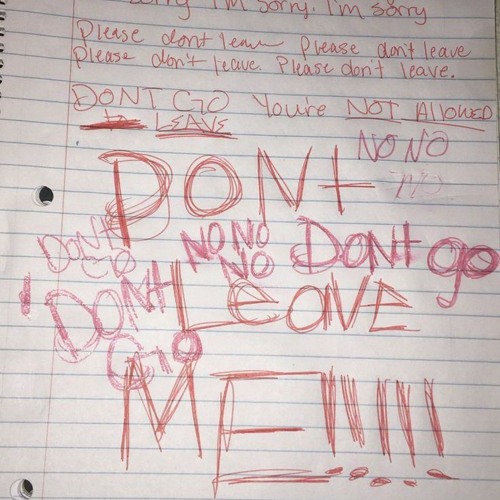 sorry I'm sorry. I'm sorry
Please dont leave Please don't leave
Please don't leave. Please don't leave.
DONT GO You're NOT ALLOWED
to LEAVE
NO NO
NO
DONt
DONT GO
NO NO NO
DONt go
DONT GO
LEAVE
ME!!!!!